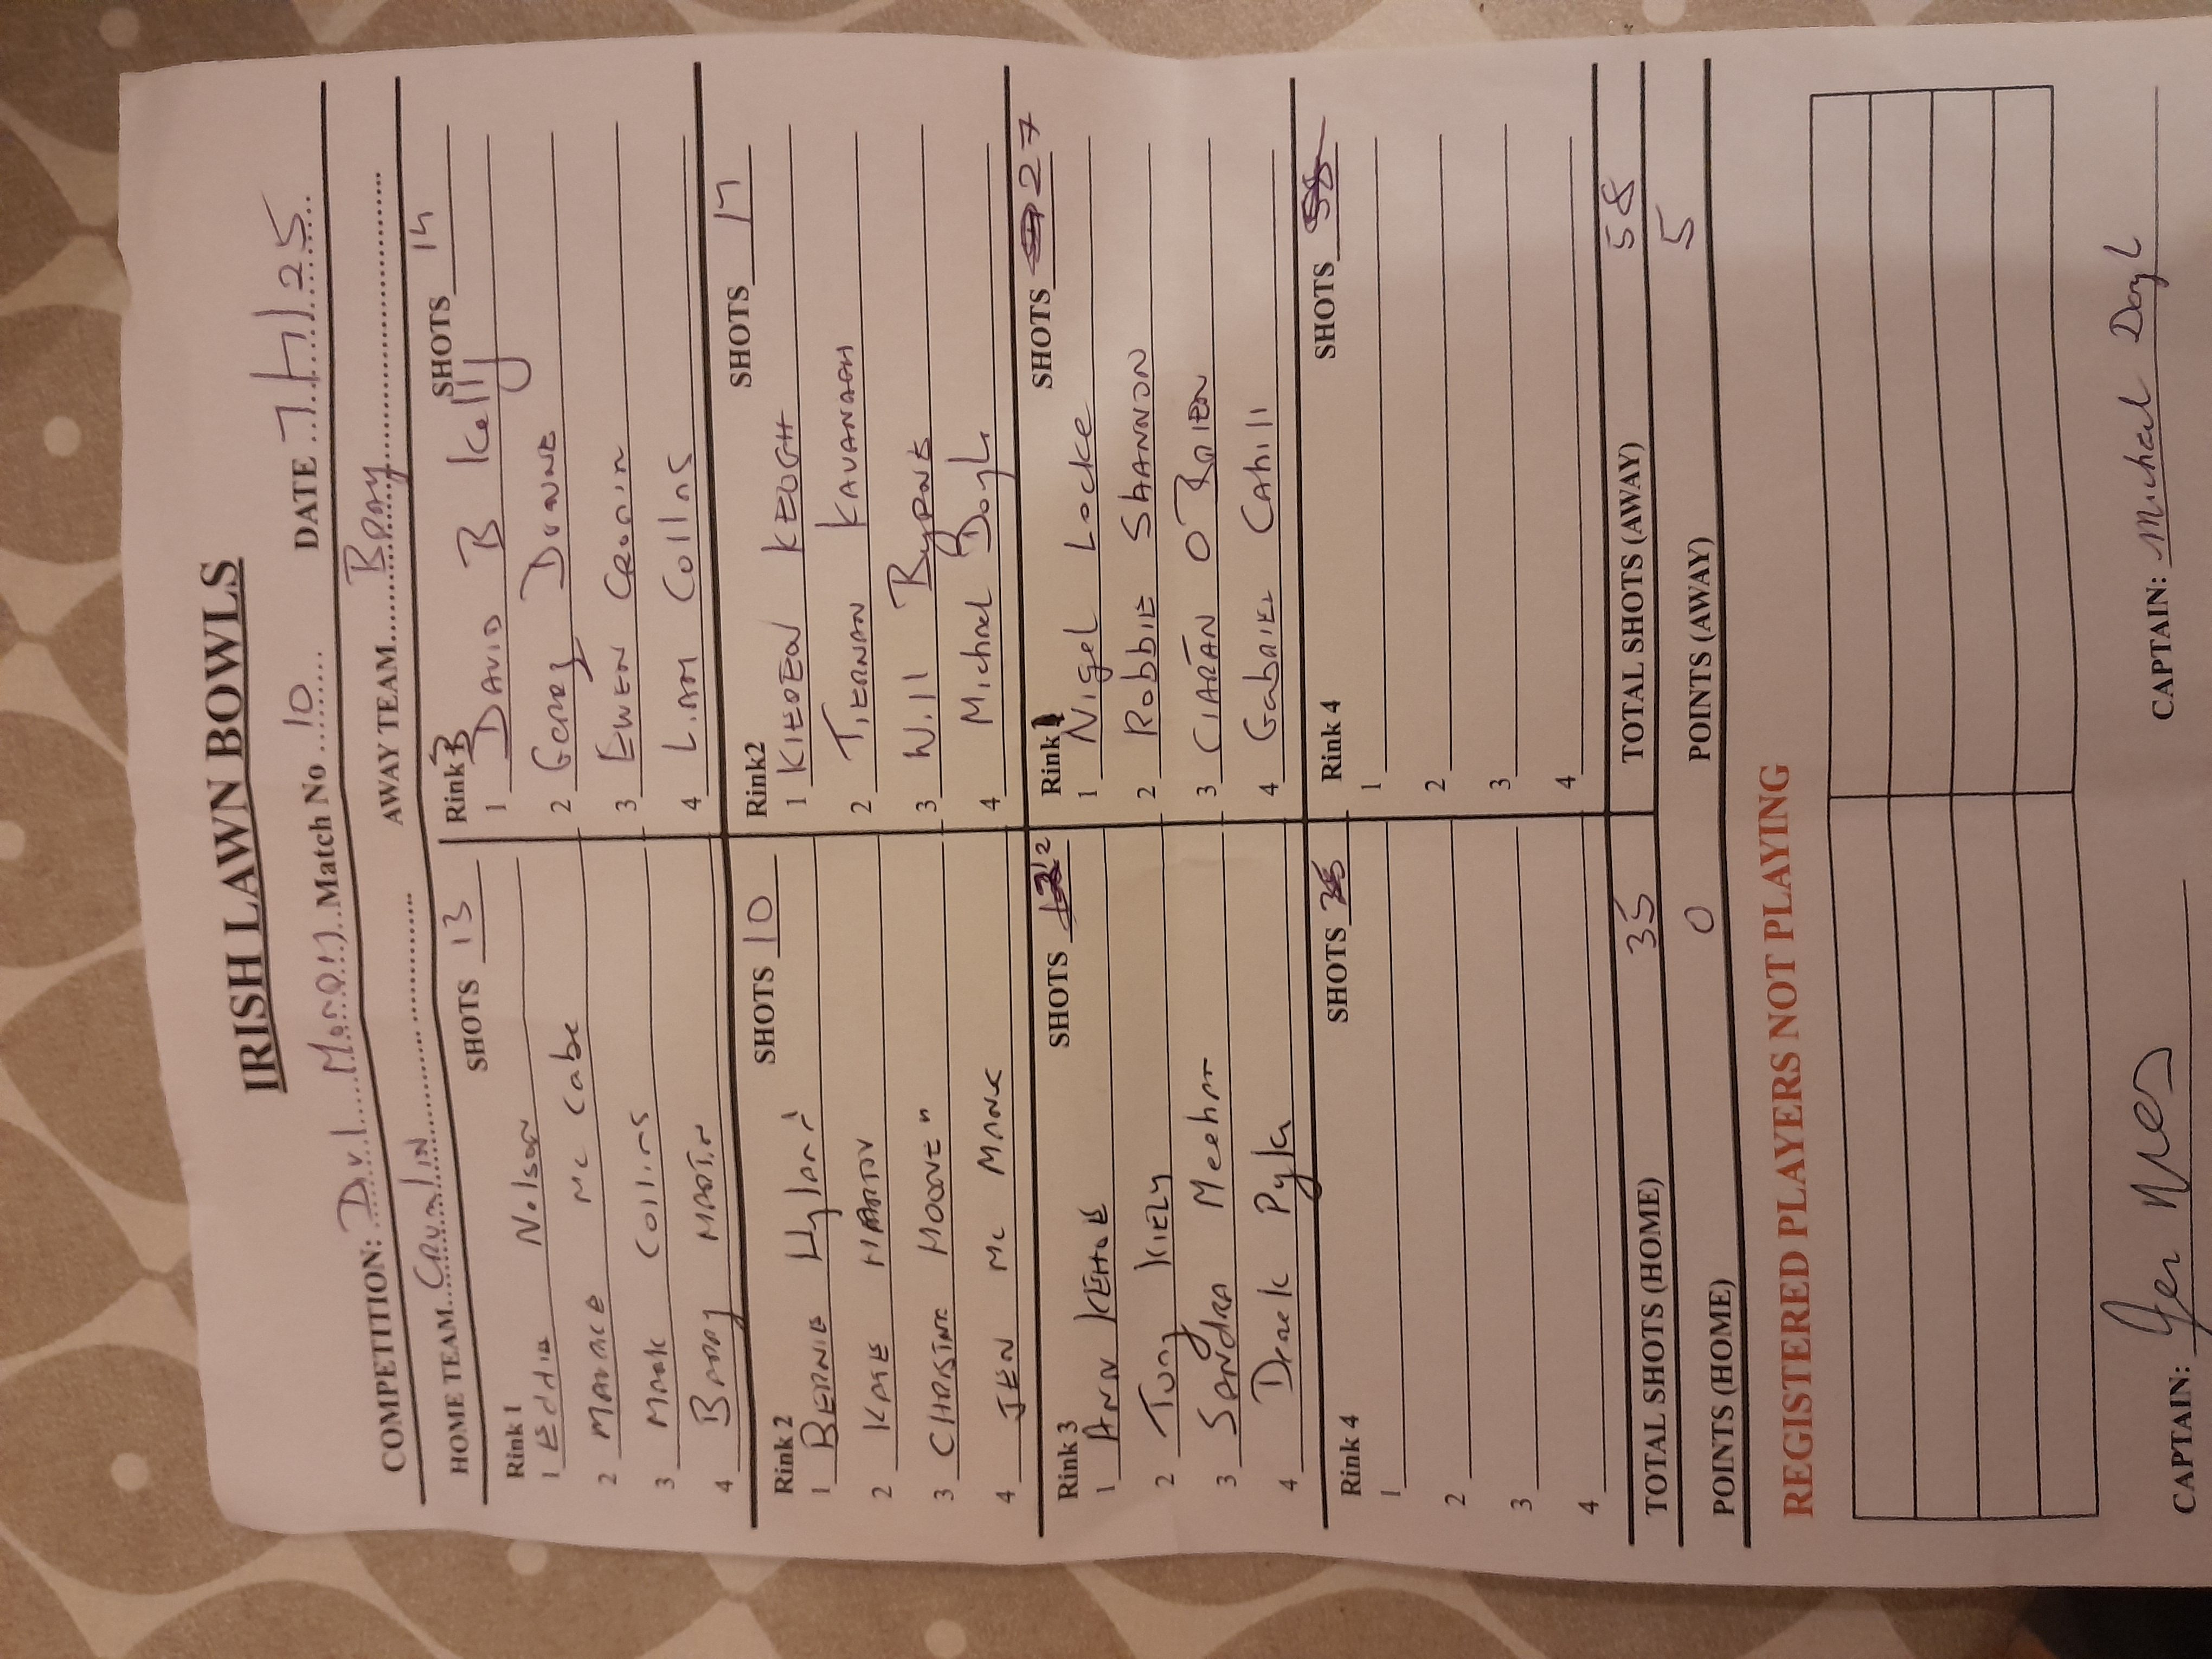 IRISH LAWN BOWLS
COMPETITION: Div 1 Match No 10 DATE 7/7/25
HOME TEAM Crumlin AWAY TEAM Bray
Rink 1 SHOTS 13 Rink 3 SHOTS 14
1 Eddie Nelson 1 DAVID B Kelly
2 MAURICE Mc Cabe 2 Gerry DUNNE
3 Mark Collins 3 EWEN Cronin
4 BARRY MARTIN 4 LIAM Collins
Rink 2 SHOTS 10 Rink2 SHOTS 17
1 BERNIE Hyland 1 KIEREN KEOGH
2 KATE MARTIN 2 TIERNAN KAVANAGH
3 CHRISTINE MOONEY 3 Will BYRNE
4 JEN Mc MANUS 4 Michael Doyle
Rink 3 SHOTS 12 Rink 1 SHOTS 27
1 ANN KEHOE 1 Nigel Locke
2 Tony KIELY 2 Robbie SHANNON
3 SANDRA Meehan 3 CIARAN O'BRIEN
4 Derek Pyke 4 GABRIEL Cahill
Rink 4 SHOTS Rink 4 SHOTS
1 1
2 2
3 3
4 4
TOTAL SHOTS (HOME) 35 TOTAL SHOTS (AWAY) 58
POINTS (HOME) 0 POINTS (AWAY) 5
REGISTERED PLAYERS NOT PLAYING
CAPTAIN: CAPTAIN: Michael Doyle